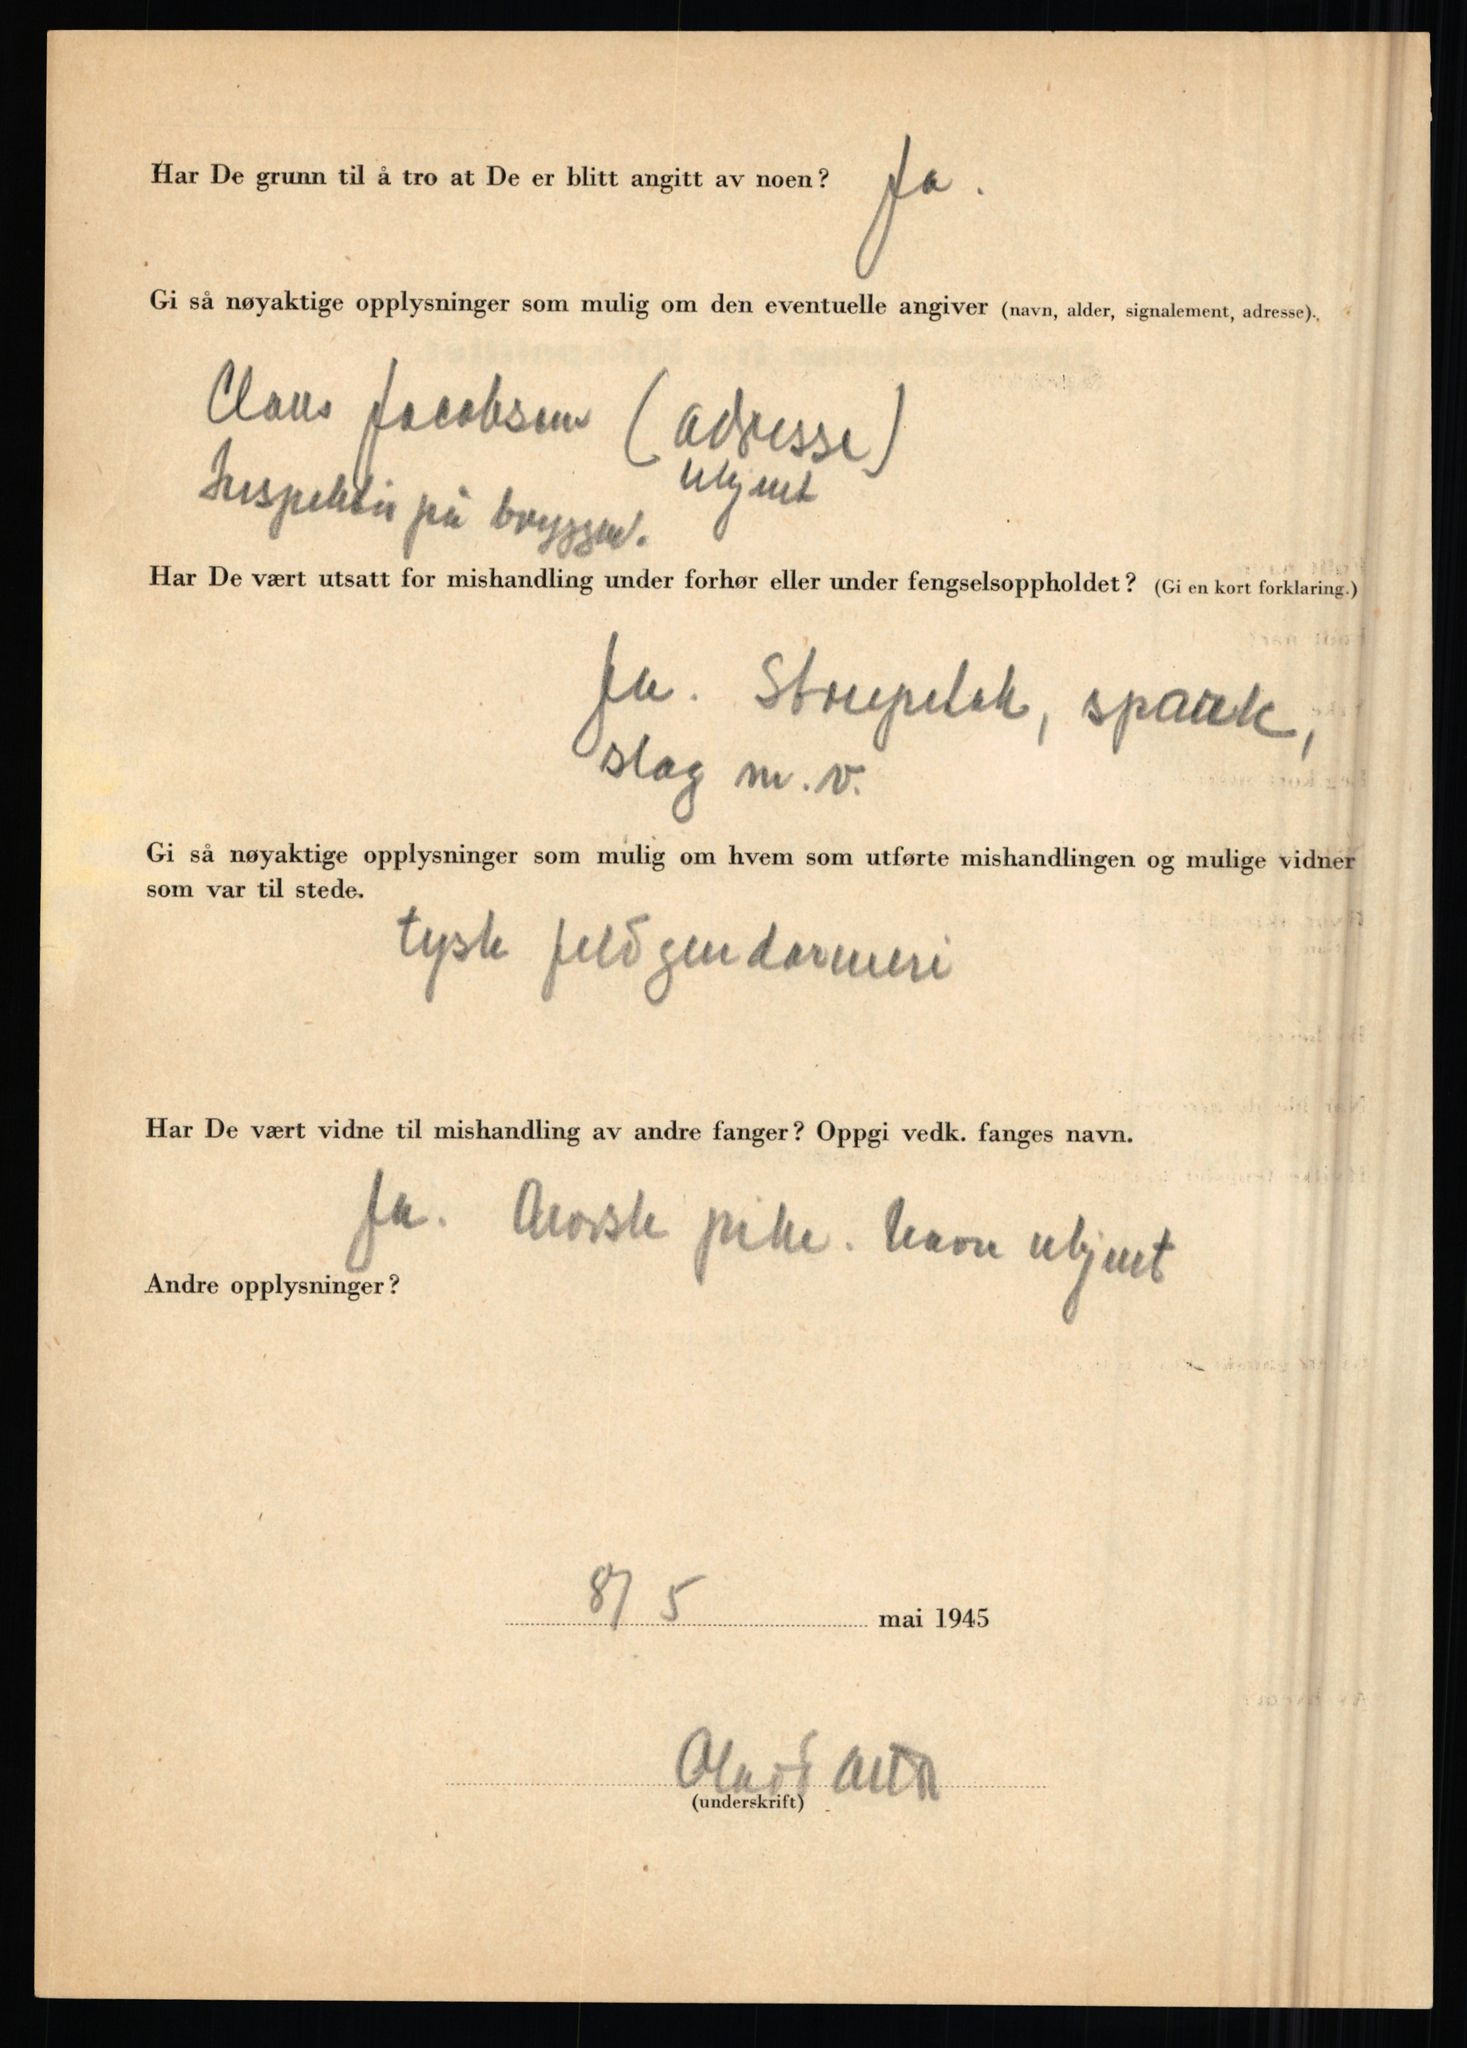 Har De grunn til å tro at De er blitt angitt av noen? Ja.
Gi så nøyaktige opplysninger som mulig om den eventuelle angiver (navn, alder, signalement, adresse).
Claus Jacobsen (adresse)
ukjent
Inspektør på bryggen.
Har De vært utsatt for mishandling under forhør eller under fengselsoppholdet? (Gi en kort forklaring.)
Ja. Strupetak, spark,
slag m.v.
Gi så nøyaktige opplysninger som mulig om hvem som utførte mishandlingen og mulige vidner
som var til stede.
tysk feldgendarmeri
Har De vært vidne til mishandling av andre fanger? Oppgi vedk. fanges navn.
Ja. Norsk pike. Navn ukjent
Andre opplysninger?
8/5 mai 1945
Olav
(underskrift)